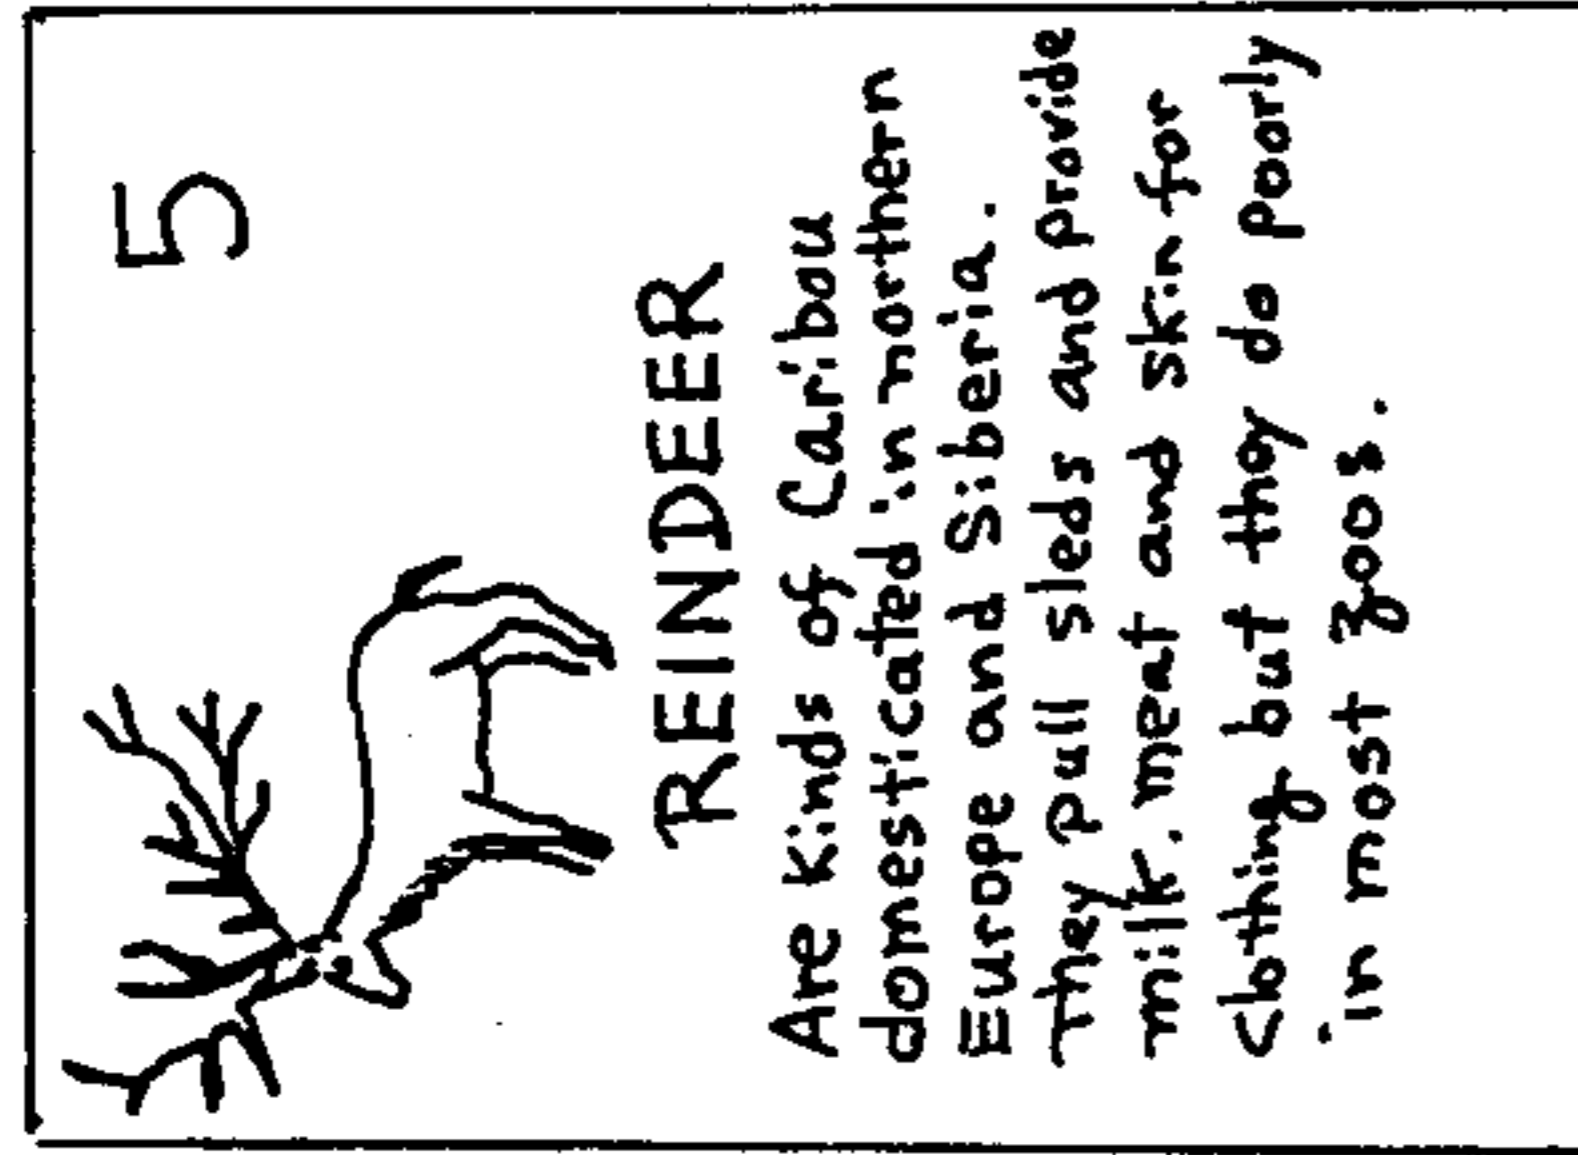 5
REINDEER
Are Kinds of Caribou
domesticated in northern
Europe and Siberia.
They pull sleds and provide
milk. meat and skin for
clothing but they do poorly
in most zoos.